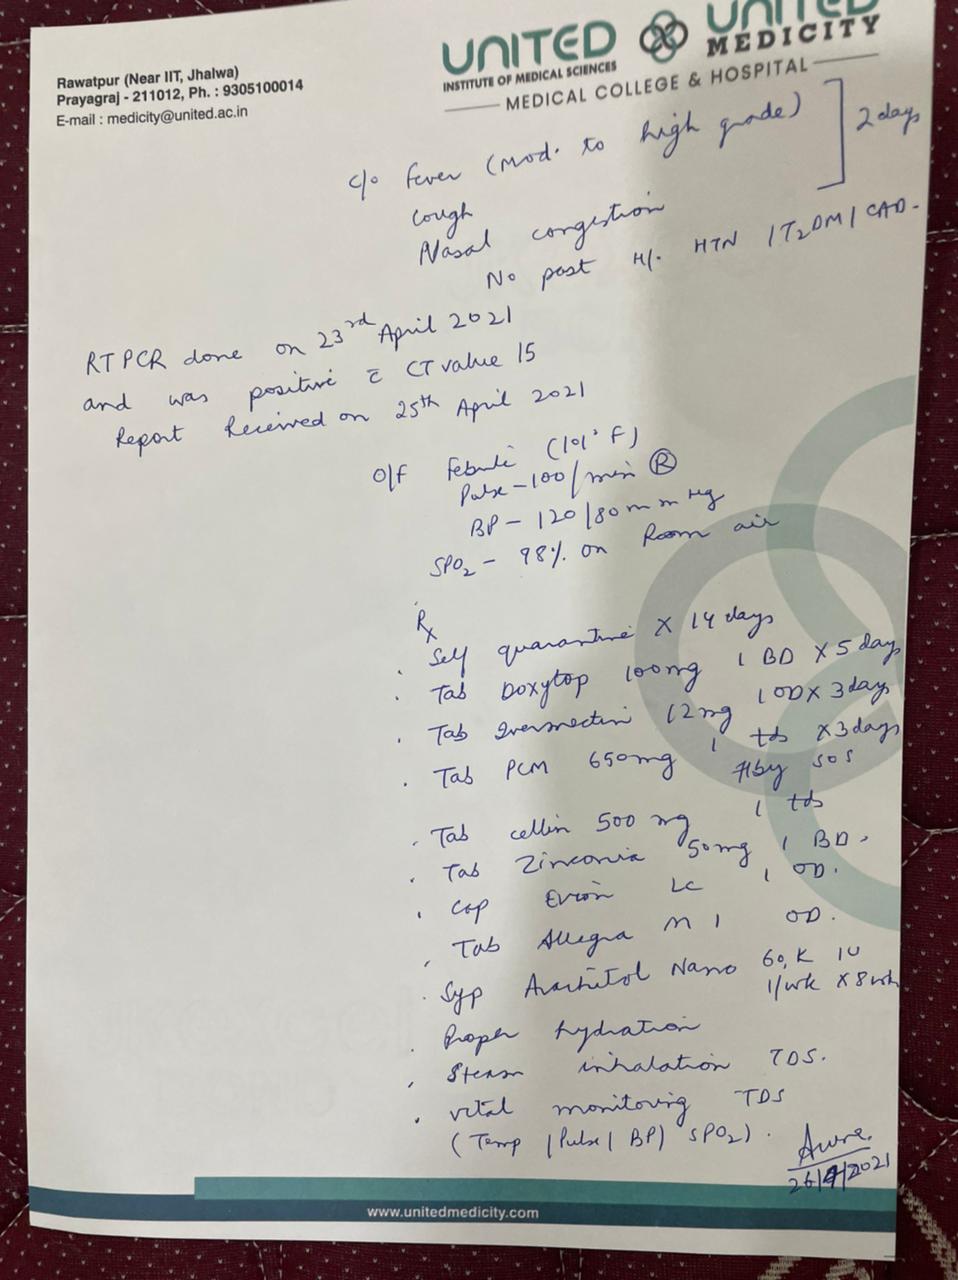 Rawatpur (Near IIT, Jhalwa)
Prayagraj - 211012, Ph. : 9305100014
E-mail : medicity@united.ac.in
UNITED
INSTITUTE OF MEDICAL SCIENCES
UNITED
MEDICITY
MEDICAL COLLEGE & HOSPITAL
c/o Fever (Mod. to high grade)
Cough
Nasal congestion
2 days
No past H/. HTN / T2DM / CAD.
RTPCR done on 23rd April 2021
and was positive c̄ CT value 15
Report Received on 25th April 2021
O/E Febrile (101° F)
Pulse - 100/min Ⓡ
BP - 120/80 mm Hg
SPO2 - 98% on Room air
Rx
. Self quarantine x 14 days
. Tab Doxytop 100mg 1 BD x 5 days
. Tab Ivermectin 12mg 1 OD x 3 days
. Tab PCM 650mg 1 tds x 3 days
f/by SOS
. Tab cellin 500 mg 1 tds
. Tab Zinconia 50mg 1 BD.
. Cap Evion LC 1 OD.
. Tab Allegra M 1 OD.
. Syp Arachitol Nano 60,K IU
1/wk x 8 wk
. Proper hydration
. Steam inhalation TDS.
. vital monitoring TDS
(Temp / Pulse / BP / SPO2).
26/4/2021
www.unitedmedicity.com